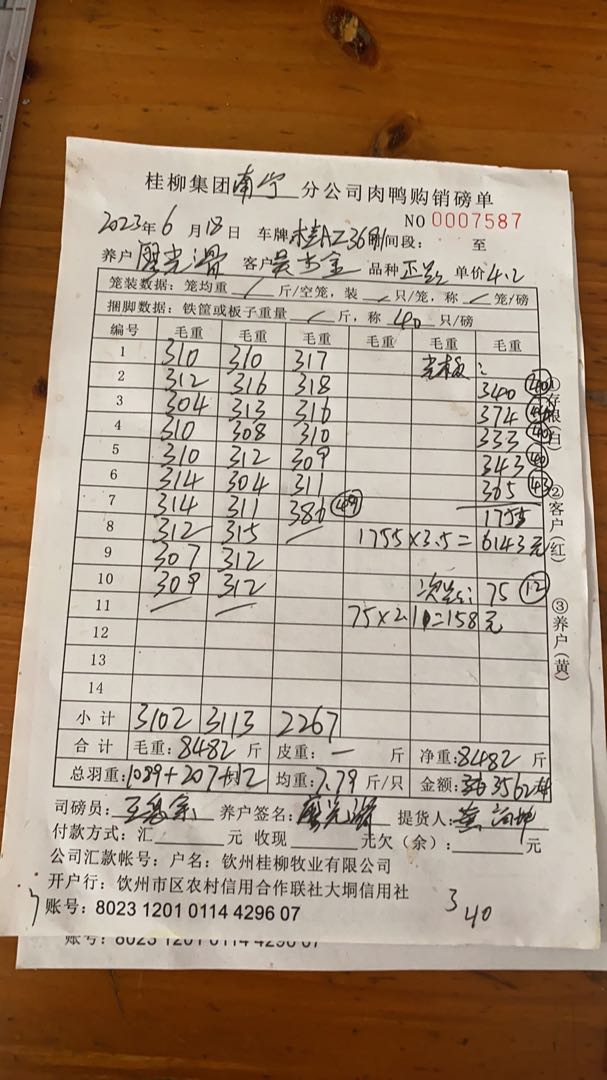 桂柳集团南宁分公司肉鸭购销磅单
NO 0007587
2023年6月18日 车牌 桂AZ36 时间段: 至
养户 客户 品种 正 单价4.2
笼装数据: 笼均重 / 斤/空笼, 装 / 只/笼, 称 / 笼/磅
捆脚数据: 铁筐或板子重量 / 斤, 称 40 只/磅
编号 毛重 毛重 毛重 毛重 毛重 毛重
1 310 310 317
2 312 316 318 340 (40)
3 304 313 316 374
4 310 308 310 333 (40)
5 310 312 309 343 (40)
6 314 304 311 365 (43)
7 314 311 386 (49) 1755
8 312 315 / 1755×3.5=6143元
9 307 312
10 309 312 次 : 75 (12)
11 / / 75×2.1=158元
12
13
14
小计 3102 3113 2267
合计 毛重: 8482 斤 皮重: — 斤 净重: 8482 斤
总羽重: 1089+207+ 均重: 7.79 斤/只 金额:
司磅员: 养户签名: 提货人:
付款方式: 汇 元 收现 元欠(余): 元
公司汇款帐号: 户名: 钦州桂柳牧业有限公司
开户行: 钦州市区农村信用合作联社大垌信用社
账号: 8023 1201 0114 4296 07
3 40
①存根(白)
②客户(红)
③养户(黄)
账号: 8023 1201 0114 4296 07